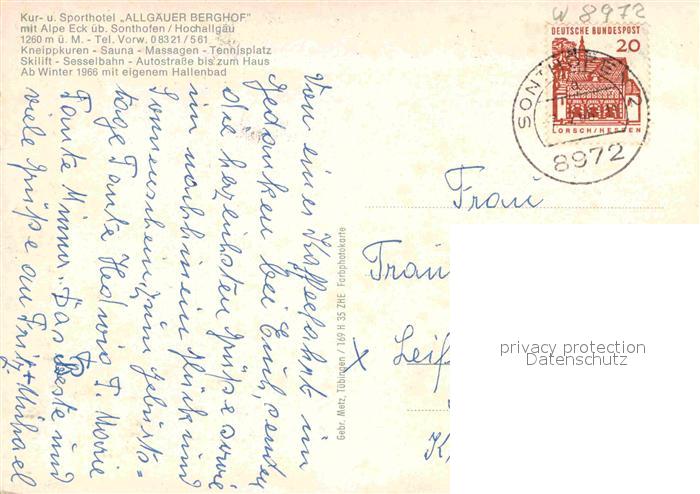 Kur- u. Sporthotel „ALLGÄUER BERGHOF"
mit Alpe Eck üb. Sonthofen / Hochallgäu
1260 m ü. M. - Tel. Vorw. 08321/561
Kneippkuren - Sauna - Massagen - Tennisplatz
Skilift - Sesselbahn - Autostraße bis zum Haus
Ab Winter 1966 mit eigenem Hallenbad
Von einer Kaffeefahrt im
Gedanken bei Euch, senden
die herzlichsten Grüße sowie
im nachhinein Glück und
Sonnenschein zum Geburts=
tage Tante Hedwig T. Marie
Tante Minna. Das Beste und
viele Grüße an Fritz + Michael
Gebr. Metz, Tübingen / 169 H 35 ZHE Farbphotokarte
W 8972
DEUTSCHE BUNDESPOST
20
LORSCH/HESSEN
SONTHOFEN 2
8972
Frau
Frau
Leif
K,
privacy protection
Datenschutz